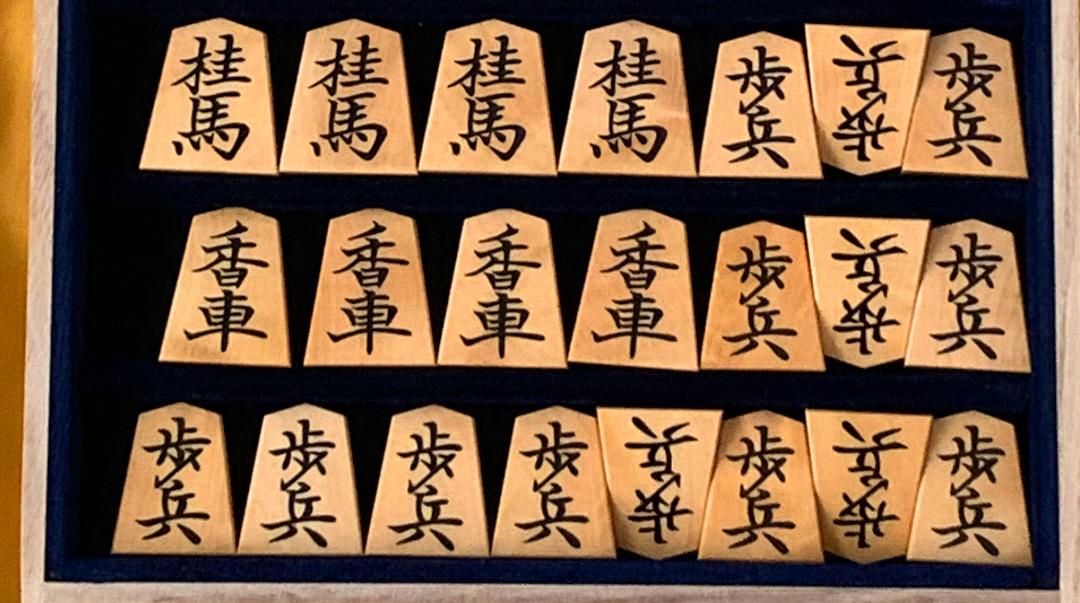 桂馬 桂馬 桂馬 桂馬 歩兵 歩兵 歩兵
香車 香車 香車 香車 歩兵 歩兵 歩兵
歩兵 歩兵 歩兵 歩兵 歩兵 歩兵 歩兵 歩兵